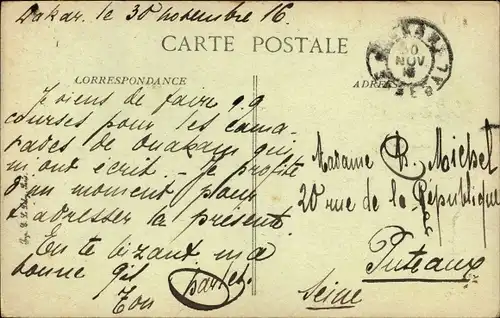 Dakar, le 30 novembre 16.
CARTE POSTALE
CORRESPONDANCE
ADRES
DAKAR
30
NOV
SENEGAL
Je viens de faire q.q.
courses pour les cama-
rades de Ouakam qui
m'ont écrit. - Je profite
d'un moment pour
t'adresser la présente.
En te bizant, ma
bonne
Ton Charles.
Madame Ch. Michel
20 rue de la République
Puteaux
Seine